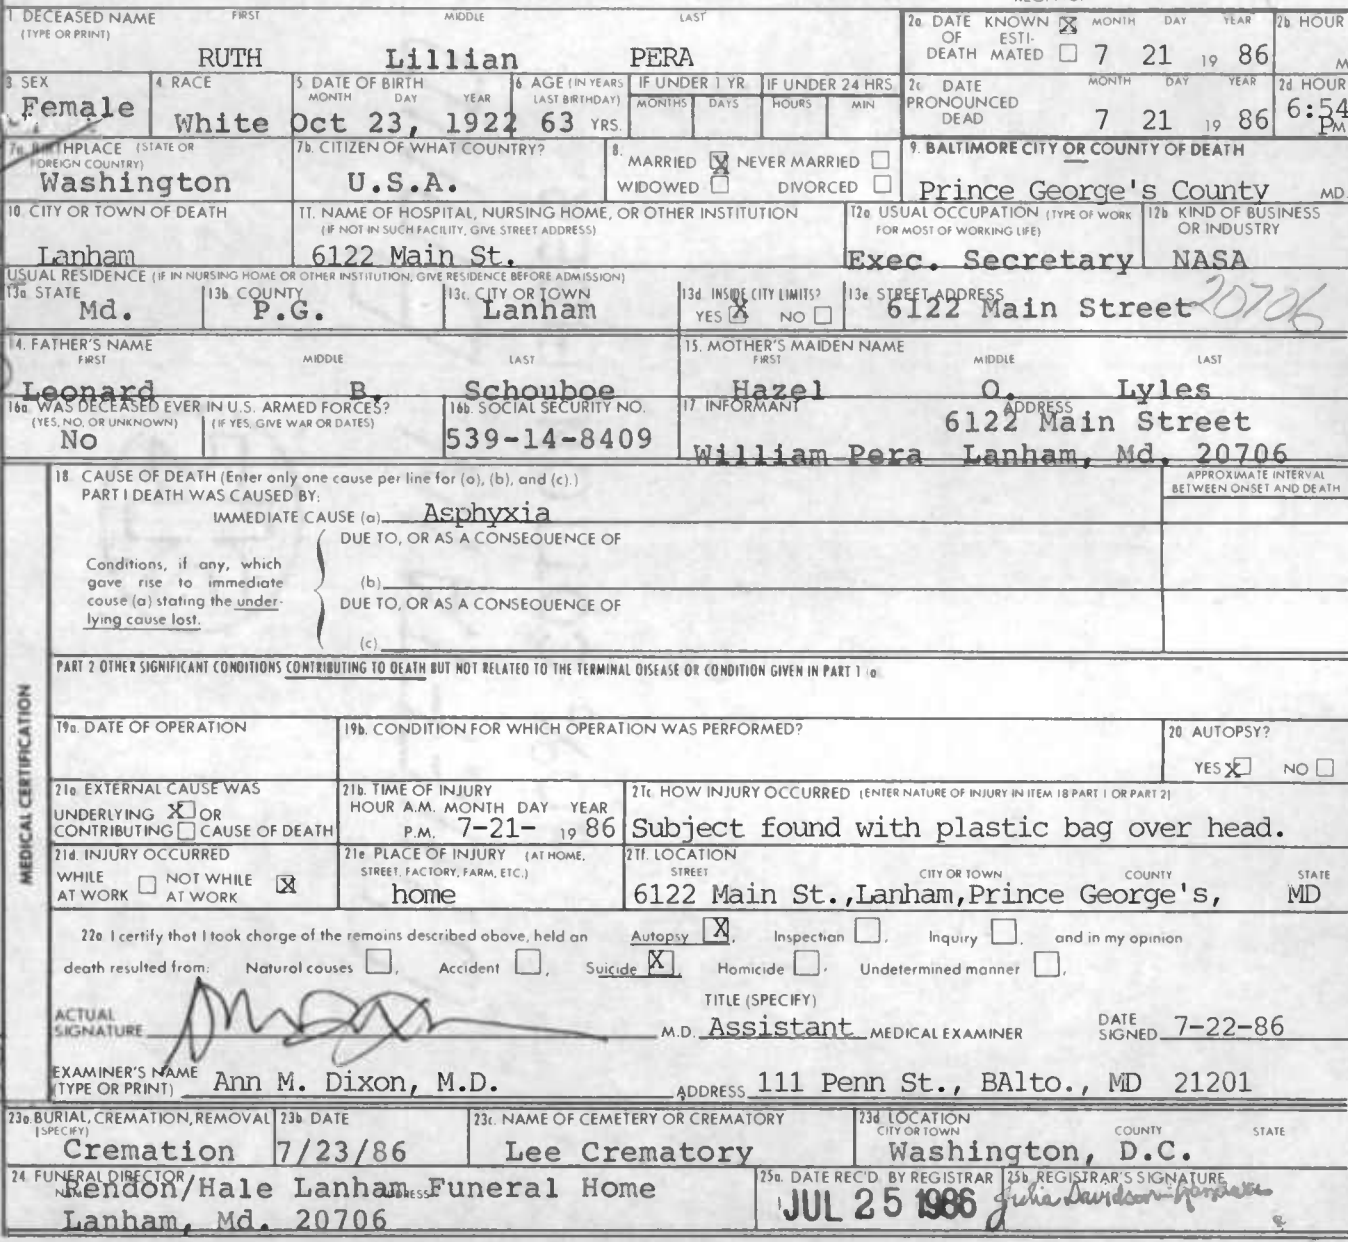 1. DECEASED NAME FIRST MIDDLE LAST
(TYPE OR PRINT)
RUTH Lillian PERA
2a. DATE KNOWN X MONTH DAY YEAR
OF ESTI-
DEATH MATED 7 21 19 86
2b. HOUR
M
3. SEX
Female
4. RACE
White
5. DATE OF BIRTH
MONTH DAY YEAR
Oct 23, 1922
6. AGE (IN YEARS
LAST BIRTHDAY)
63 YRS.
IF UNDER 1 YR.
MONTHS DAYS
IF UNDER 24 HRS.
HOURS MIN
2c. DATE MONTH DAY YEAR
PRONOUNCED
DEAD 7 21 19 86
2d. HOUR
6:54
PM
7a. BIRTHPLACE (STATE OR
FOREIGN COUNTRY)
Washington
7b. CITIZEN OF WHAT COUNTRY?
U.S.A.
8. MARRIED X NEVER MARRIED
WIDOWED DIVORCED
9. BALTIMORE CITY OR COUNTY OF DEATH
Prince George's County MD.
10. CITY OR TOWN OF DEATH
Lanham
11. NAME OF HOSPITAL, NURSING HOME, OR OTHER INSTITUTION
(IF NOT IN SUCH FACILITY, GIVE STREET ADDRESS)
6122 Main St.
12a. USUAL OCCUPATION (TYPE OF WORK
FOR MOST OF WORKING LIFE)
Exec. Secretary
12b. KIND OF BUSINESS
OR INDUSTRY
NASA
USUAL RESIDENCE (IF IN NURSING HOME OR OTHER INSTITUTION, GIVE RESIDENCE BEFORE ADMISSION)
13a. STATE
Md.
13b. COUNTY
P.G.
13c. CITY OR TOWN
Lanham
13d. INSIDE CITY LIMITS?
YES X NO
13e. STREET ADDRESS
6122 Main Street 20706
14. FATHER'S NAME
FIRST MIDDLE LAST
Leonard B. Schouboe
15. MOTHER'S MAIDEN NAME
FIRST MIDDLE LAST
Hazel O. Lyles
16a. WAS DECEASED EVER IN U.S. ARMED FORCES?
(YES, NO, OR UNKNOWN) (IF YES, GIVE WAR OR DATES)
No
16b. SOCIAL SECURITY NO.
539-14-8409
17. INFORMANT ADDRESS
6122 Main Street
William Pera Lanham, Md. 20706
MEDICAL CERTIFICATION
18. CAUSE OF DEATH (Enter only one cause per line for (a), (b), and (c).)
PART I DEATH WAS CAUSED BY:
APPROXIMATE INTERVAL
BETWEEN ONSET AND DEATH
IMMEDIATE CAUSE (a) Asphyxia
DUE TO, OR AS A CONSEQUENCE OF
Conditions, if any, which
gave rise to immediate
cause (a) stating the under-
lying cause last.
(b)
DUE TO, OR AS A CONSEQUENCE OF
(c)
PART 2 OTHER SIGNIFICANT CONDITIONS CONTRIBUTING TO DEATH BUT NOT RELATED TO THE TERMINAL DISEASE OR CONDITION GIVEN IN PART 1 (a)
19a. DATE OF OPERATION
19b. CONDITION FOR WHICH OPERATION WAS PERFORMED?
20. AUTOPSY?
YES X NO
21a. EXTERNAL CAUSE WAS
UNDERLYING X OR
CONTRIBUTING CAUSE OF DEATH
21b. TIME OF INJURY
HOUR A.M. MONTH DAY YEAR
P.M. 7-21- 19 86
21c. HOW INJURY OCCURRED (ENTER NATURE OF INJURY IN ITEM 18 PART 1 OR PART 2)
Subject found with plastic bag over head.
21d. INJURY OCCURRED
WHILE NOT WHILE
AT WORK AT WORK X
21e. PLACE OF INJURY (AT HOME,
STREET, FACTORY, FARM, ETC.)
home
21f. LOCATION
STREET CITY OR TOWN COUNTY STATE
6122 Main St.,Lanham,Prince George's, MD
22a. I certify that I took charge of the remains described above, held an Autopsy X, Inspection , Inquiry , and in my opinion
death resulted from: Natural causes , Accident , Suicide X, Homicide , Undetermined manner ,
TITLE (SPECIFY)
ACTUAL
SIGNATURE M.D. Assistant MEDICAL EXAMINER
DATE
SIGNED 7-22-86
EXAMINER'S NAME
(TYPE OR PRINT) Ann M. Dixon, M.D. ADDRESS 111 Penn St., BAlto., MD 21201
23a. BURIAL, CREMATION, REMOVAL
(SPECIFY)
Cremation
23b. DATE
7/23/86
23c. NAME OF CEMETERY OR CREMATORY
Lee Crematory
23d. LOCATION
CITY OR TOWN COUNTY STATE
Washington, D.C.
24. FUNERAL DIRECTOR
NAME ADDRESS
Rendon/Hale Lanham Funeral Home
Lanham, Md. 20706
25a. DATE REC'D BY REGISTRAR
JUL 25 1986
25b. REGISTRAR'S SIGNATURE
Julia Davidson-